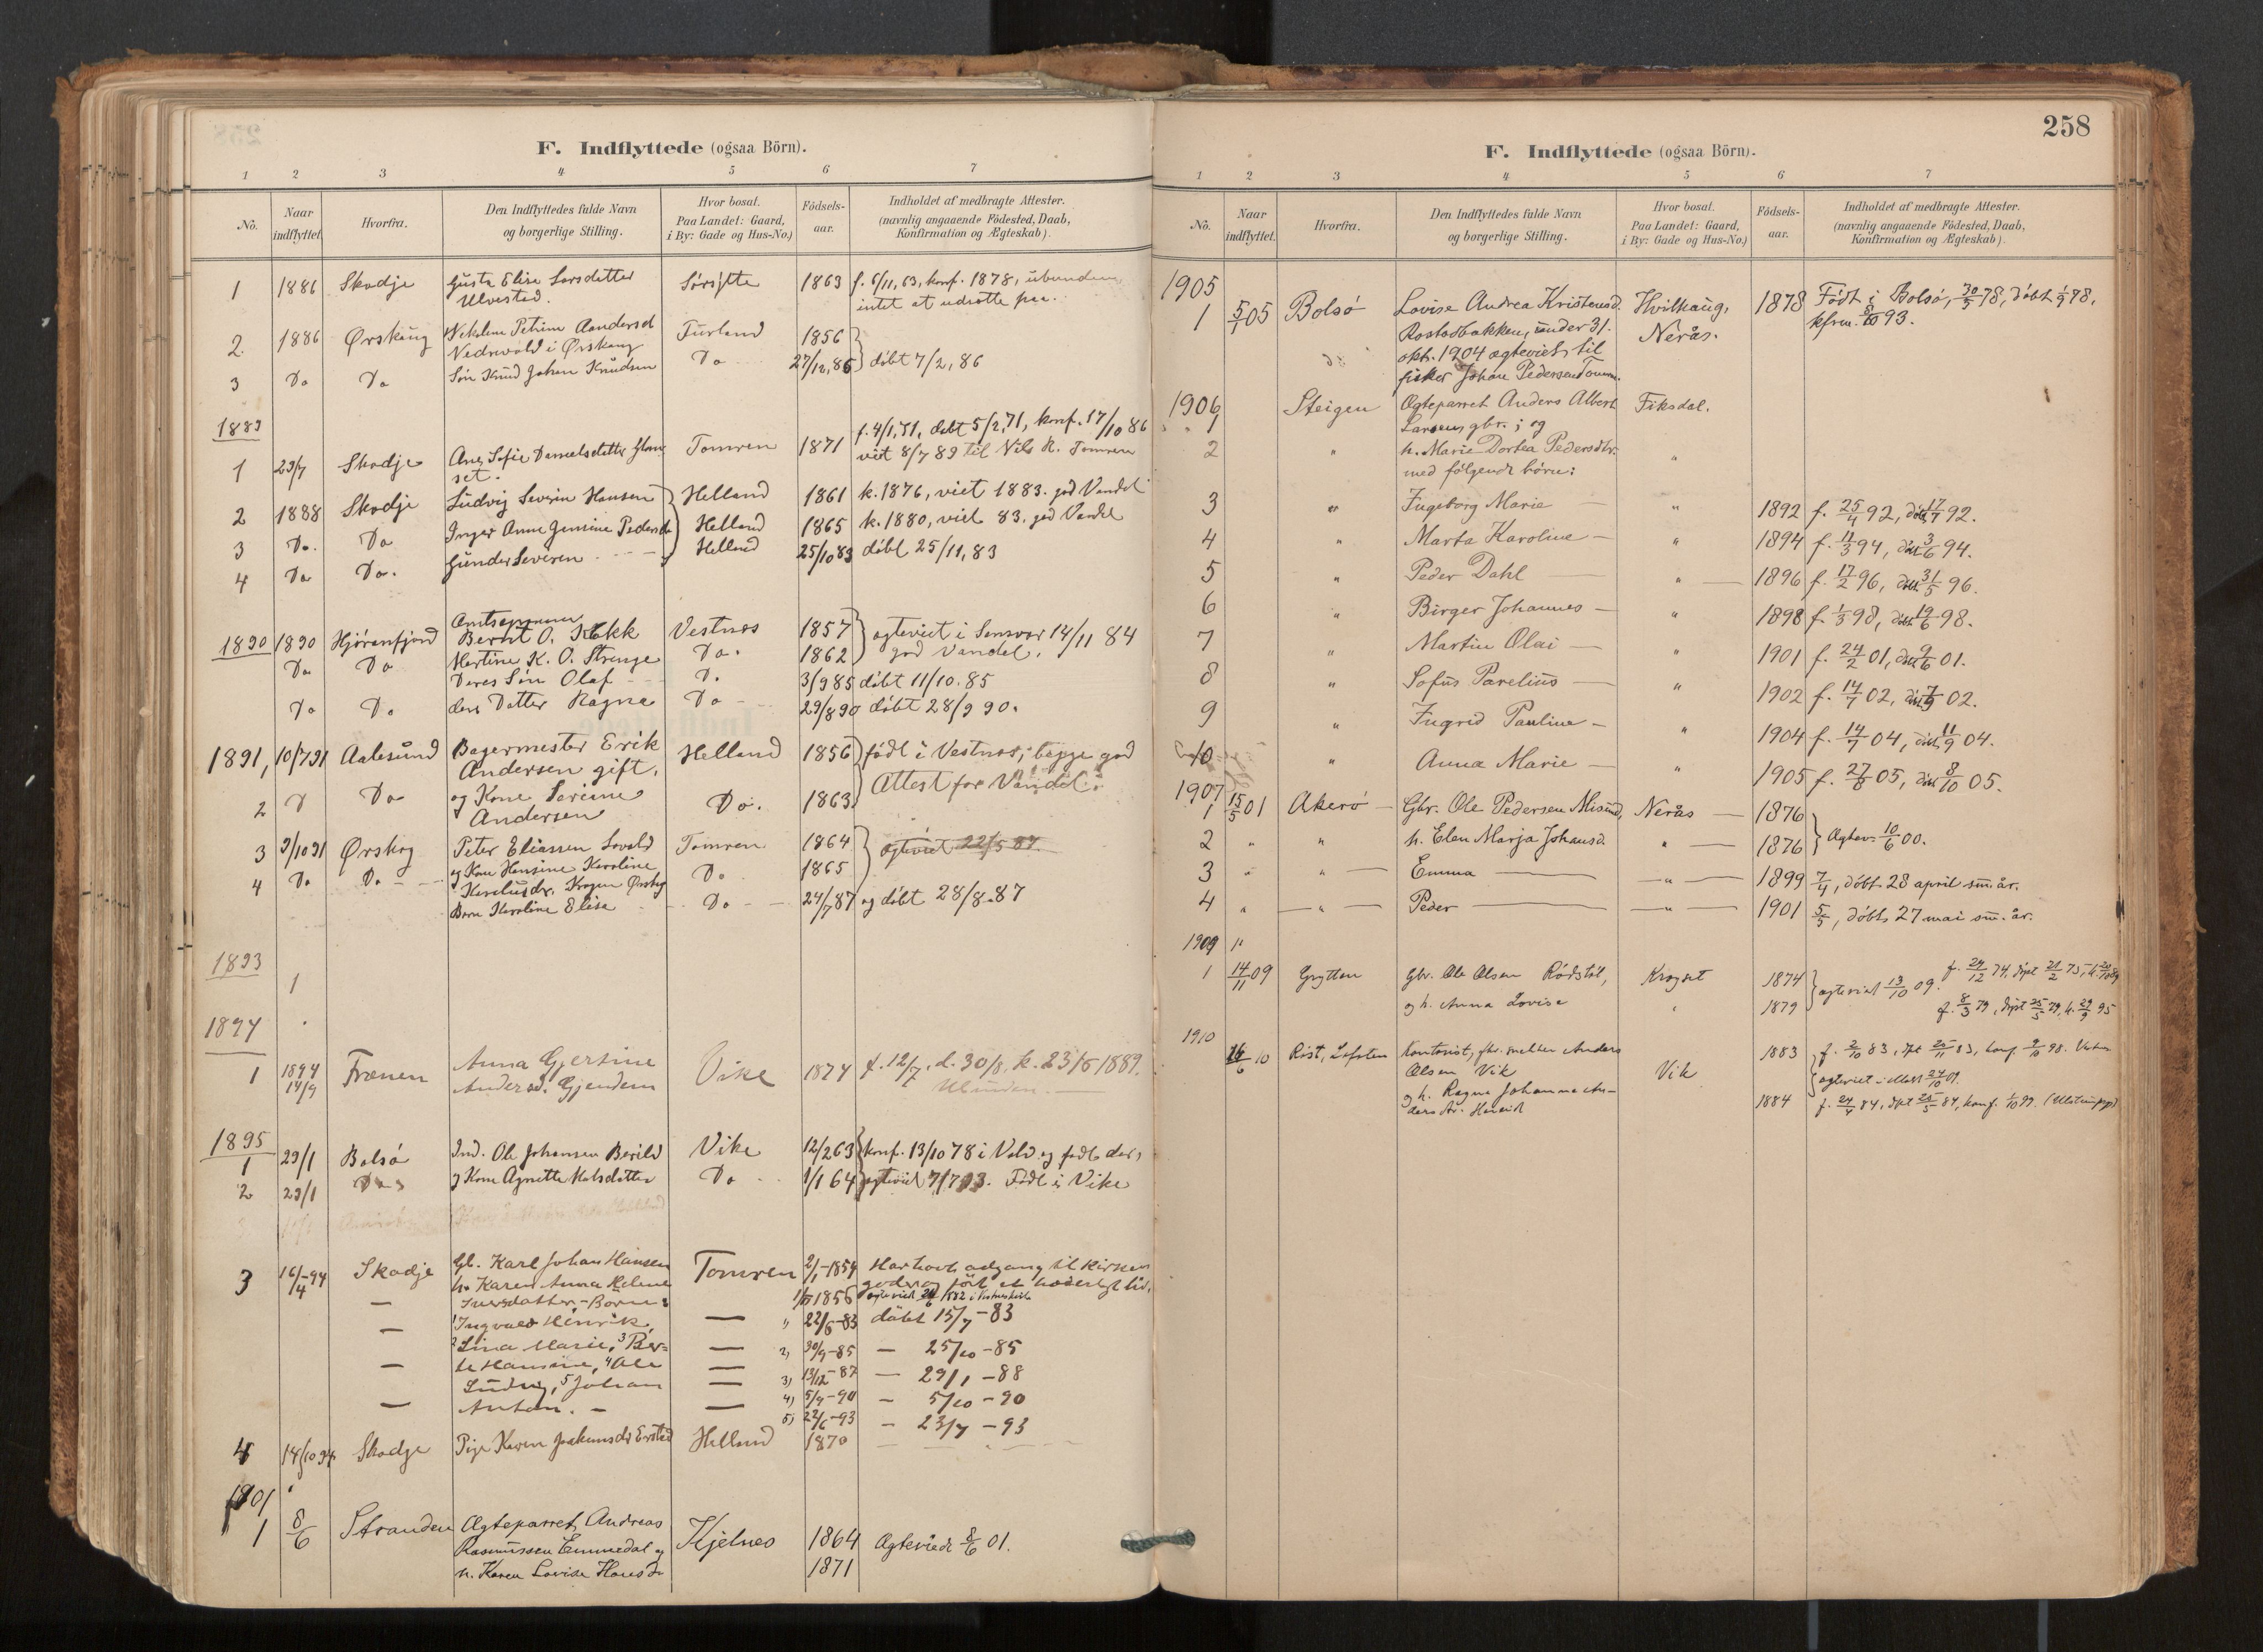 F. Indflyttede (ogsaa Börn).
1 2 3 4 5 6 7
No. Naar indflyttet. Hvorfra. Den Indflyttedes fulde Navn og borgerlige Stilling. Hvor bosat. Paa Landet: Gaard, i By: Gade og Hus-No.) Födsels-aar. Indholdet af medbragte Attester. (navnlig angaaende Födested, Daab, Konfirmation og Ægteskab).
1 1886 Skodje Gusta Elise Larsdatter 1863 f. 6/11, 63, konf. 1878, ubunden
Ulvestad. intet at udsætte paa.
2. 1886 Ørskoug Petrine 1856
i Ørskoug
3 Do Do Søn Knud Johan Knudsen Do 27/12, 85 döbt 7/2, 86
1889
f. 4/1, 71, döbt 5/2, 71, konf. 17/10 86
1 23/7 Skodje Ane Sofie Danielsdatter Tomren 1871 viet 8/7 89 til Nils K. Tomren
set.
2 1888 Skodje Ludvig Severin Hansen Helland 1861 k. 1876, viet 1883. god Vandel
3 Do. Do Inger Anne Jensine Pedersdr Helland 1865 k. 1880, viet 83. god Vandel
4 Do Do. Gunder Severin Helland 25/10 83 döbt 25/11, 83
1890 1890 Hjörenfjord Bernt O. Vestnes 1857 ægteviet i 14/11 84
Do Do Martine K. O. Do. 1862 god Vandel.
Deres Søn Olaf D. 3/9 85 döbt 11/10. 85
Do Do ders Datter Ragna Do 29/8 90 döbt 28/9 90.
1891, 10/7 91 Aalesund Bagermester Erik Helland 1856 född i Vestnes, begge god
Andersen gift. Attest for Vandel.
2 Do og Kone Serine Do. 1863
Andersen
3 9/10 91 Ørskog Peter Eliassen Tomren 1864 ægteviet 22/5 87.
4 Do Do og Kone Hansine Karoline Do 1865
Barn Karoline Elise Do 24/7 87 og döbt 28/8.87
1893
1
1894
1 1894 14/9 Frænen Anna Gjertine Vike 1874 f. 12/7, d. 30/8, k. 23/6 1889.
Andersd. Gjendem
1895
1 29/1 Bolsö Ind. Ole Johansen Berild Vike 12/2 63 konf. 13/10 78 i Vold og født der,
2 29/1 Do og Kone Agnette Matsdatter Do 1/1 64 ægteviet 7/7 93. Født i Vike
3 16/4-94 Skodje Gl. Karl Johan Hansen Tomren 2/1-1854 Har havt adgang til Kirkens
h. Karen Anna Helene 1856 goder og fört et hæderligt liv,
Iversdatter - Børn:
— 1 Ingvald Hinrik, — 1) 22/5-83 döbt 15/7-83
— 2 Lina Marie, 3 Ber- — 2) 30/9-85 — 25/10-85
te Hansine, 4 Ole — 3) 13/12-87 — 29/1-88
— Ludvig, 5 Johan — 4) 5/9-90 — 5/10-90
Anton. — 5) 22/6-93 — 23/7-93
4 14/10 94 Skodje Pige Karen Joakimsdr Helland 1870
1901
1 8/6 Stranden Ægteparret Andreas Kjelnes 1864 Ægteviede 8/6 01.
Rasmussen Emmedal og
h. Karen Lovise Hansdr 1871
258
F. Indflyttede (ogsaa Börn).
1 2 3 4 5 6 7
No. Naar indflyttet. Hvorfra. Den Indflyttedes fulde Navn og borgerlige Stilling. Hvor bosat. Paa Landet: Gaard, i By: Gade og Hus-No.) Födsels-aar. Indholdet af medbragte Attester. (navnlig angaaende Födested, Daab, Konfirmation og Ægteskab).
1905
1 5/1 05 Bolsö Lovise Andrea Kristensd. Hvilhaug, 1878 Född i Bolsö, 30/3 78, döbt 1/5 78,
Rostadbakken, under 31. Nerås. kfrm. 8/10 93.
okt. 1904 ægteviet til
fisker Johan Pedersen
1906 Steigen Ægteparret Anders Albert Fiksdal.
1 Larsen, gbr.; og
2 " h. Marie Dortea Pedersdtr. "
med fölgende börn:
3 " Ingeborg Marie — " 1892 f. 25/4 92, döbt 17/7 92.
4 " Marta Karoline — " 1894 f. 11/3 94, döbt 3/6 94.
5 " Peder Dahl — " — 1896 f. 17/2 96, döbt 31/5 96.
6 " Birger Johannes — " 1898 f. 1/3 98, döbt 19/6 98.
7 " Martin Olai — " 1901 f. 24/2 01, döbt 9/6 01.
8 " Sofus Parelius — " 1902 f. 14/7 02, döbt 7/9 02.
9 " Ingrid Pauline — " 1904 f. 14/7 04, döbt 11/9 04.
10 " Anna Marie — 1905 f. 27/8 05, döbt 8/10 05.
1907
1 15/5 01 Akerö — Gbr. Ole Pedersen Misund, Nerås — 1876
2 " " h. Elen Marja Johansd. " — 1876 Ægtev. 10/6 00.
3 " " — Emma — " — 1899 7/4, döbt 28 april sm. år.
4 " — " — Peder — — " — 1901 5/5, döbt 27 mai sm. år.
1909
1 14/11 09 Grytten Gbr. Ole Olsen Rödstöl, 1874 ægteviet 13/10 09. f. 24/12 74, döpt 21/2 75,
og h. Anna Lovise 1879 f. 8/3 79, döpt 25/5 79, k. 29/9 95
1910
16/6 10 Rist, Lofoten Kontorist, Anders Vik 1883 f. 2/10 83, dpt 25/11 83, konf. 9/10 98.
Olsen Vik ægteviet 24/10 09.
og h. Ragna Johanne An-
ders dtr. 1884 f. 24/4 84, dpt 25/5 84, konf. 1/10 99.